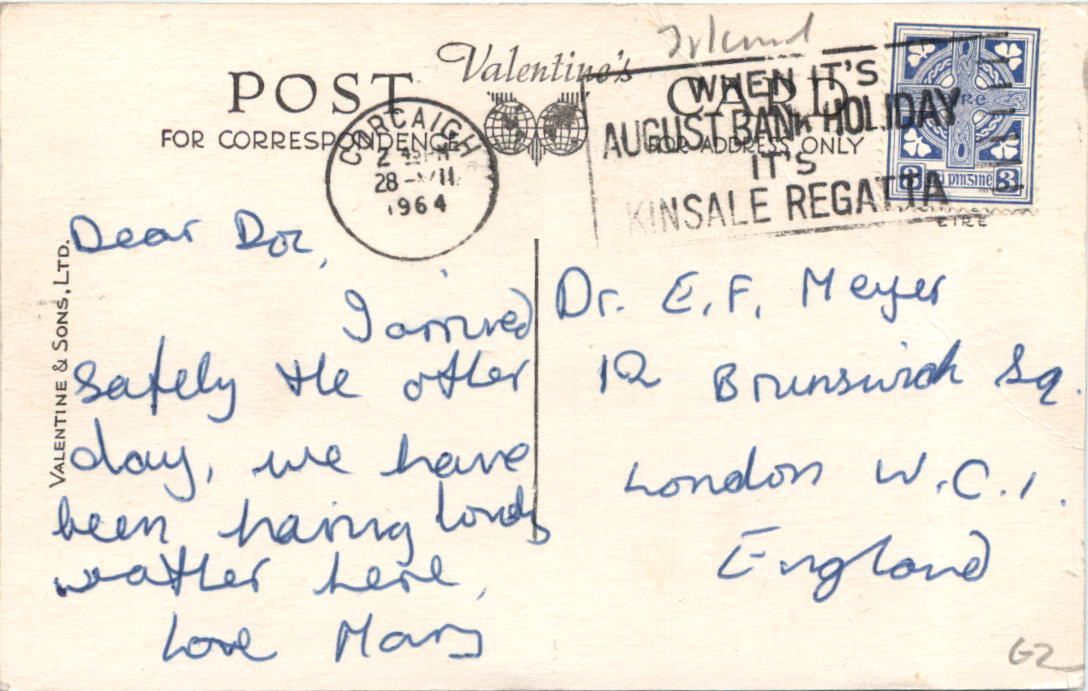 Valentine's
Ireland
POST CARD
FOR CORRESPONDENCE
FOR ADDRESS ONLY
CORCAIGH
2 45PM
28 -VII
1964
WHEN IT'S
AUGUST BANK HOLIDAY
IT'S
KINSALE REGATTA
3
EIRE
VALENTINE & SONS, LTD.
Dear Doc,
I arrived
safely the other
day, we have
been having lovely
weather here,
Love Mary
Dr. E. F. Meyer
12 Brunswick Sq.
London W.C.1.
England
G2